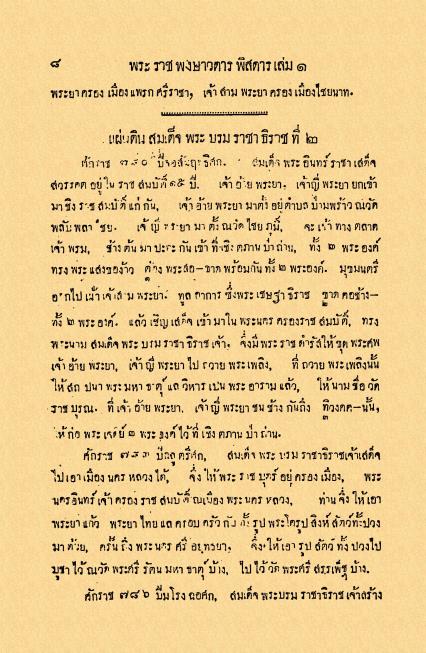 ๘ พระ ราช พงษาวดาร พิสดาร เล่ม ๑
พระยา ครอง เมือง แพรก ศรีราชา, เจ้า สาม พระยา ครอง เมือง ไชยนาท.
แผ่นดิน สมเด็จ พระ บรม ราชา ธิราช ที่ ๒
ศักราช ๗๘๐ ปีจอสัมฤทธิศก. สมเด็จ พระ อินทร์ ราชา เสด็จ
สวรรคต อยู่ ใน ราช สมบัติ ๑๕ ปี. เจ้า อ้าย พระยา, เจ้ายี่ พระยา ยกเข้า
มา ชิง ราช สมบัติ แก่ กัน, เจ้า อ้าย พระยา มาตั้ง อยู่ตำบล ป่ามพร้าว ณวัด
พลับ พลา ไชย. เจ้า ยี่ พระยา มา ตั้ง ณวัด ไชย ภูมิ์, จะ เข้า ทาง ตลาด
เจ้า พรม, ช้าง ต้น มา ปะทะ กัน เข้า ที่เชิง ตภาน ป่าถ่าน, ทั้ง ๒ พระ องค์
ทรง พระ แสงของ้าว ต้อง พระสอ ขาด พร้อมกัน ทั้ง ๒ พระองค์. มุขมนตรี
ออกไป เฝ้า เจ้าสาม พระยา ทูล อาการ ซึ่งพระ เชษฐา ธิราช ขาด คอช้าง
ทั้ง ๒ พระ องค์. แล้ว เชิญ เสด็จ เข้า มาใน พระนคร ครองราช สมบัติ์, ทรง
พระนาม สมเด็จ พระ บรม ราชา ธิราช เจ้า. จึ่งมี พระ ราช ดำรัสให้ ขุด พระศพ
เจ้า อ้าย พระยา, เจ้ายี่ พระยา ไป ถวาย พระเพลิง, ที่ ถวาย พระเพลิงนั้น
ให้ สถา ปนา พระ มหา ธาตุ์ แล วิหาร เปน พระ อาราม แล้ว, ให้ นาม ชื่อ วัด
ราช บุรณ. ที่ เจ้า อ้าย พระยา, เจ้า ยี่ พระยา ชน ช้าง กันถึง ทิวงคต นั้น,
ให้ ก่อ พระ เจดีย์ ๒ พระ องค์ ไว้ ที่ เชิง ตภาน ป่า ถ่าน.
ศักราช ๗๘๓ ปีฉลูตรีศก, สมเด็จ พระ บรม ราชาธิราชเจ้าเสด็จ
ไปเอา เมือง นคร หลวง ได้, จึ่ง ให้ พระ ราช บุตร์ อยู่ ครอง เมือง, พระ
นครอินทร์ เจ้า ครอง ราช สมบัติ ณเมือง พระ นคร หลวง, ท่าน จึ่ง ให้ เอา
พระยา แก้ว พระยา ไทย แล ครอบ ครัว กับ ทั้ง รูป พระโครูป สิงห์ สัตว์ทั้งปวง
มา ด้วย, ครั้น ถึง พระ นคร ศรี อยุทธยา, จึ่งให้ เอา รูป สัตว์ ทั้ง ปวงไป
บูชา ไว้ ณวัด พระศรี รัตน มหา ธาตุ์ บ้าง, ไป ไว้ วัด พระศรี สรรเพ็ชญ บ้าง.
ศักราช ๗๘๖ ปีมโรง ฉอศก, สมเด็จ พระบรม ราชาธิราช เจ้าสร้าง